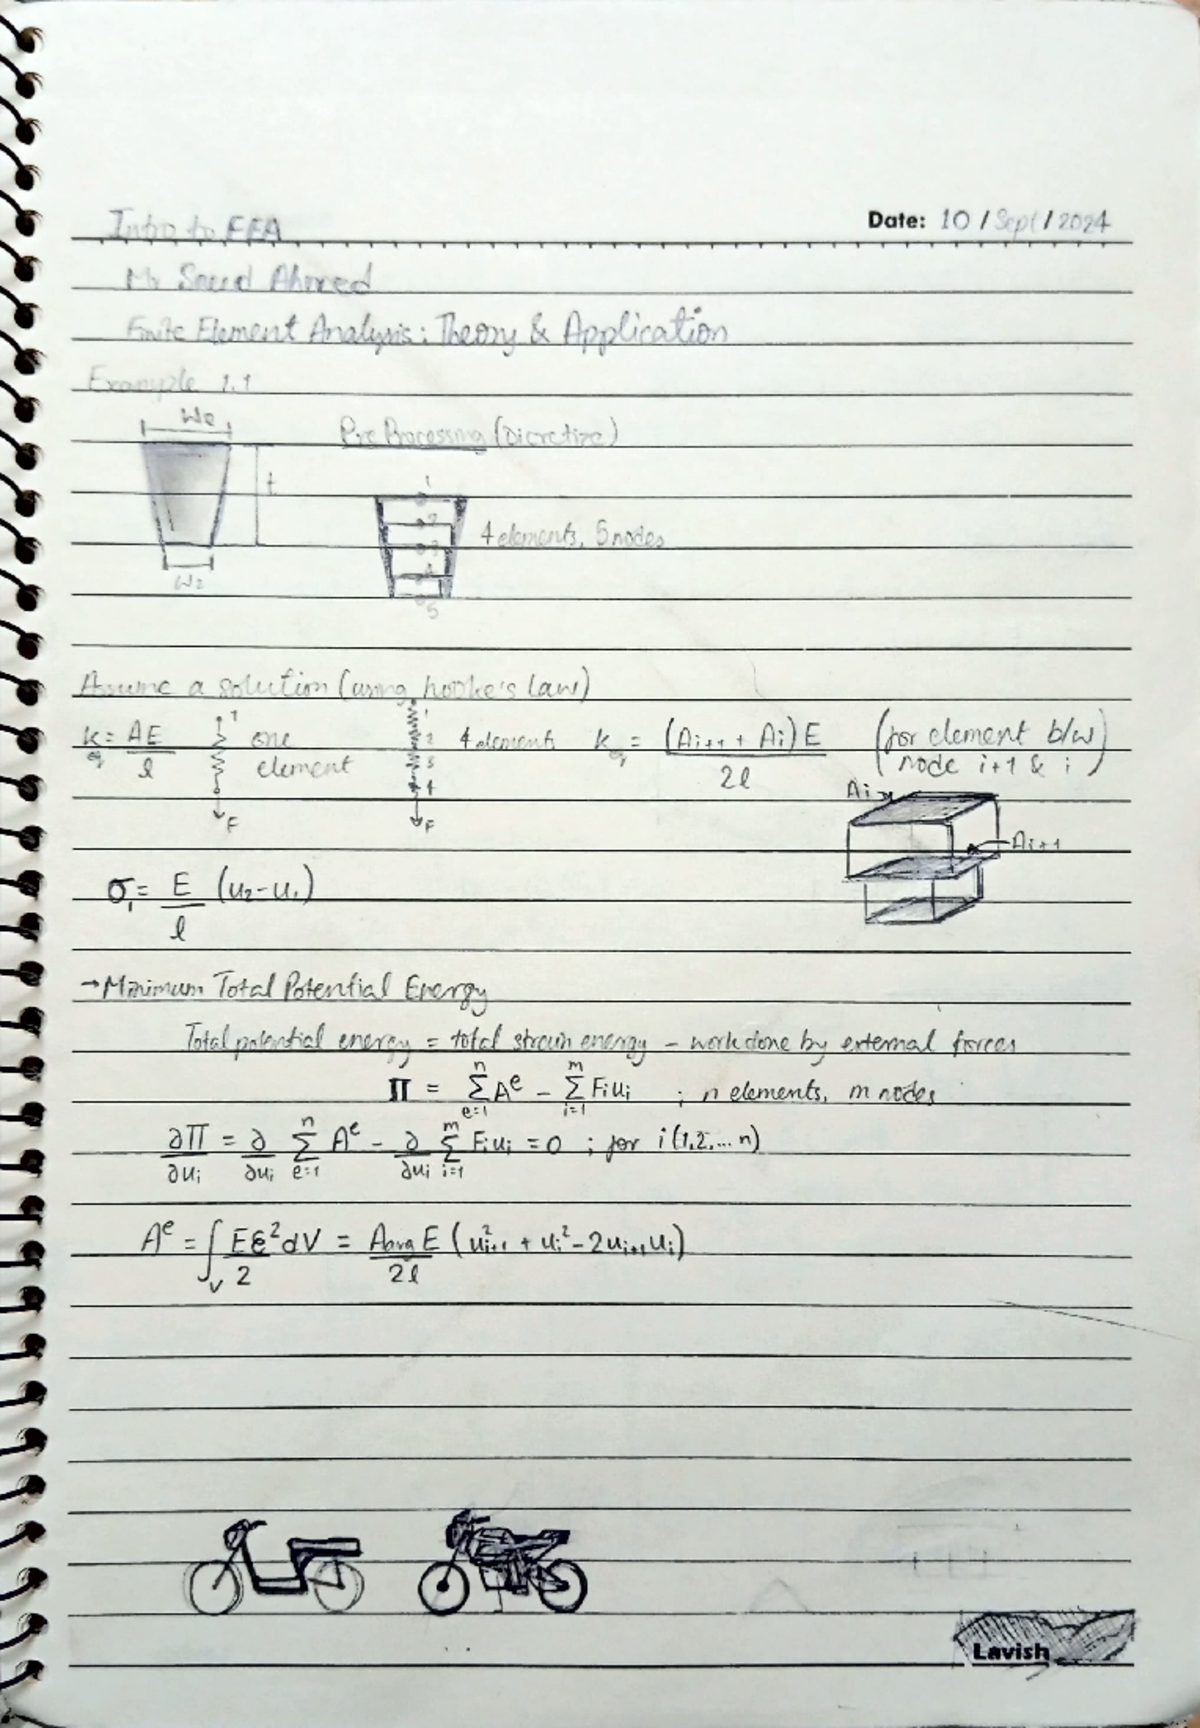 Intro to FEA
Date: 10 / Sept / 2024
Mr Saeed Ahmed
Finite Element Analysis: Theory & Application
Example 1.1
Pre Processing (Dicretize)
t
1
2
3
4
5
4 elements, 5 nodes
W2
Assume a solution (using hooke's law)
k_eq = AE/l
1
one element
F
1
2
3
4
F
4 elements
k_eq = (A_{i+1} + A_i)E / 2l
(for element b/w node i+1 & i)
Ai
Ai+1
σ₁ = E/l (u₂-u₁)
→Minimum Total Potential Energy
Total potential energy = total strain energy - work done by external forces
Π = Σ_{e=1}^{n} A^e - Σ_{i=1}^{m} F_i u_i ; n elements, m nodes
∂Π/∂u_i = ∂/∂u_i Σ_{e=1}^{n} A^e - ∂/∂u_i Σ_{i=1}^{m} F_i u_i = 0 ; for i(1,2,... n)
A^e = ∫_V Eε²/2 dV = A_avg E/2l (u²_{i+1} + u_i² - 2u_{i+1}u_i)
Lavish